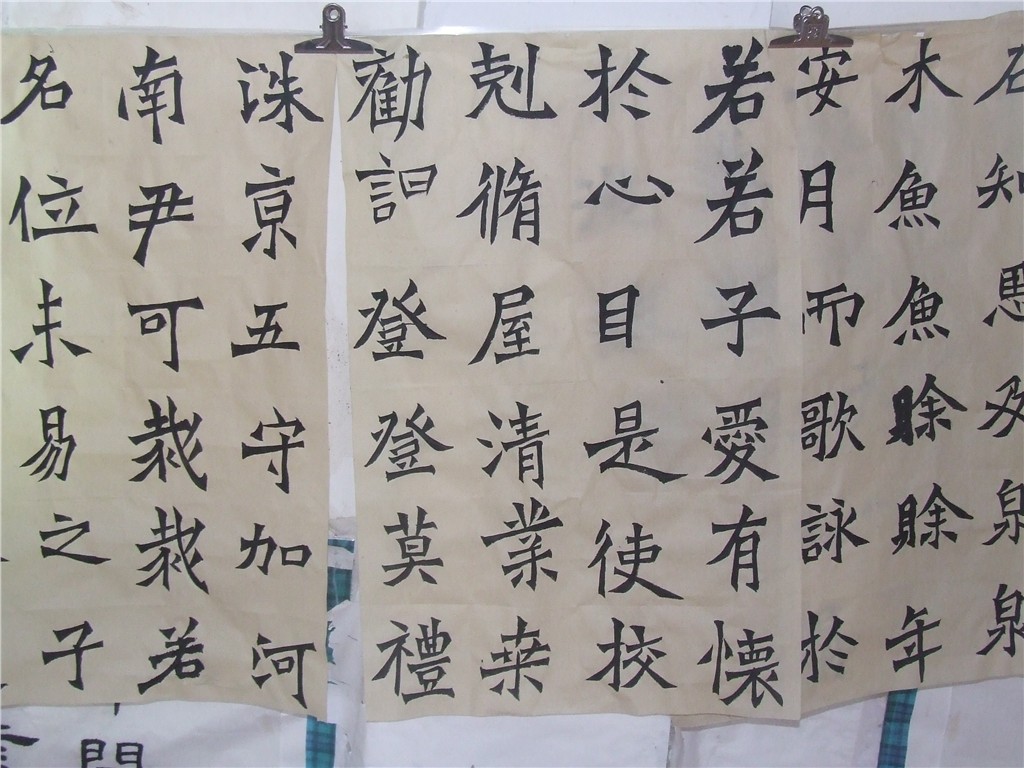 知及泉泉
木魚魚賖賖年
安月而歌詠於
若若子愛有懷
於心目是使校
剋脩屋清業桒
勸詚登登莫禮
洙京五守加河
南尹可裁裁若
名位未易之子
門